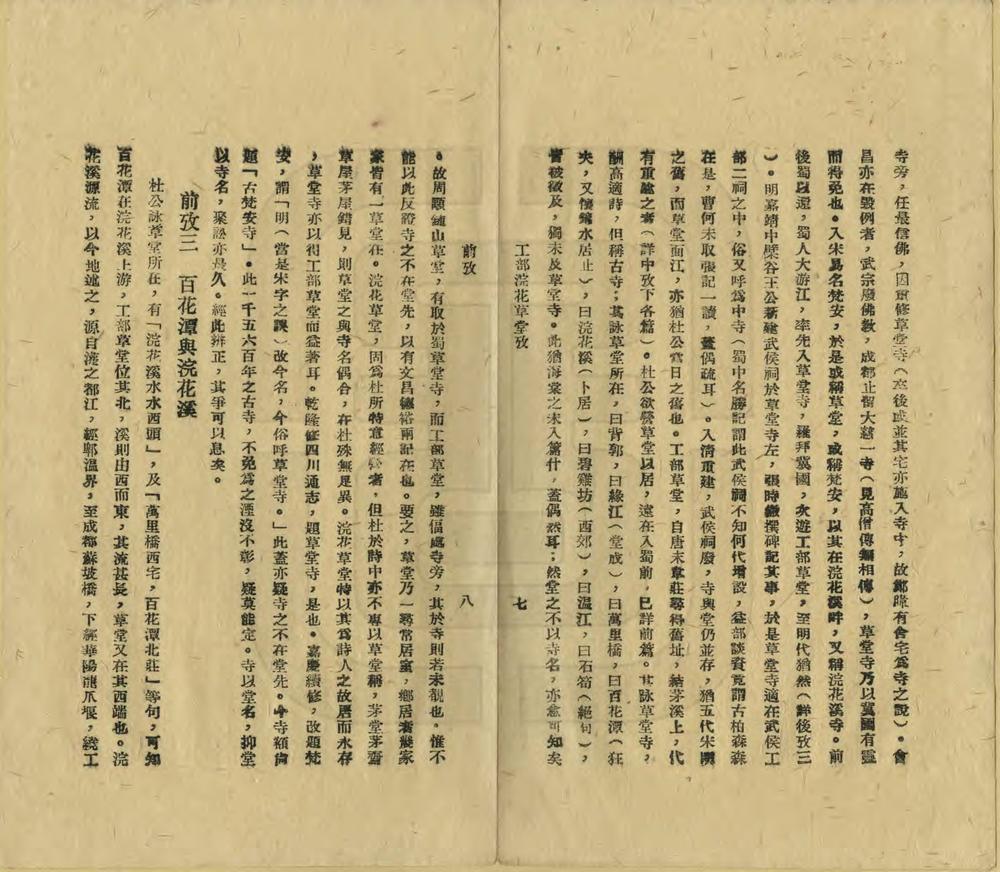 寺旁，任最信佛，因重修草堂寺（在後或並其宅亦施入寺中，故鄰隊有舍宅爲寺之說）。會
昌亦在毀例者，武宗廢佛敎，成都止留大慈一寺（見高僧傳知相傳），草堂寺乃以冀國有靈
而得免也。入宋易名梵安，於是或稱草堂，或稱梵安，以其在浣花溪畔，又稱浣花溪寺。前
後蜀以還，蜀人大游江，率先入草堂寺，羅拜冀國，次遊工部草堂，至明代猶然（詳後攷三
）。明嘉靖中檗谷王公新建武侯祠於草堂寺左，張時徹撰碑記其事，於是草堂寺適在武侯工
部二祠之中，俗又呼爲中寺（蜀中名勝記謂此武侯祠不知何代增設，益部談資竟謂古柏森森
在是，曹何未取張記一讀，蓋偶疏耳）。入清重建，武侯祠廢，寺與堂仍並存，猶五代宋明
之舊，而草堂面江，亦猶杜公當日之舊也。工部草堂，自唐末韋莊尋得舊址，結茅溪上，代
有重建之者（詳中攷下各篇）。杜公欲營草堂以居，遠在入蜀前，已詳前篇。其詠草堂寺，
酬高適詩，但稱古寺；其詠草堂所在，曰背郭，曰緣江（堂成），曰萬里橋，曰百花潭（狂
夫，又懷錦水居止），曰浣花溪（卜居），曰碧雞坊（西郊），曰溫江，曰石筍（絕句），
皆被徵及，獨未及草堂寺。此猶海棠之未入篇什，蓋偶然耳；然堂之不以寺名，亦愈可知矣
工部浣花草堂攷
七
前攷
八
。故周顒鍾山草堂，有取於蜀草堂寺，而工部草堂，雖偪處寺旁，其於寺則若未覩也。惟不
能以此反證寺之不在堂先，以有文昌德裕兩記在也。要之，草堂乃一尋常居室，鄉居者幾家
家皆有一草堂在。浣花草堂，固爲杜所特意經營者，但杜於詩中亦不專以草堂稱，茅堂茅齋
草屋茅屋錯見，則草堂之與寺名偶合，在杜殊無足異。浣花草堂特以其爲詩人之故居而永存
，草堂寺亦以得工部草堂而益著耳。乾隆修四川通志，題草堂寺，是也。嘉慶續修，改題梵
安，謂「明（當是宋字之誤）改今名，今俗呼草堂寺。」此蓋亦疑寺之不在堂先。今寺額尙
題「古梵安寺」。此一千五六百年之古寺，不免爲之湮沒不彰，疑莫能定。寺以堂名，抑堂
以寺名，聚訟亦最久。經此辨正，其爭可以息矣。
前攷三　百花潭與浣花溪
杜公詠草堂所在，有「浣花溪水水西頭」，及「萬里橋西宅，百花潭北莊」等句，可知
百花潭在浣花溪上游，工部草堂位其北，溪則由西而東，其流甚長，草堂又在其西端也。浣
花溪源流，以今地述之，源自灌之都江，經郫溫界，至成都蘇坡橋，下經華陽龍爪堰，繞工